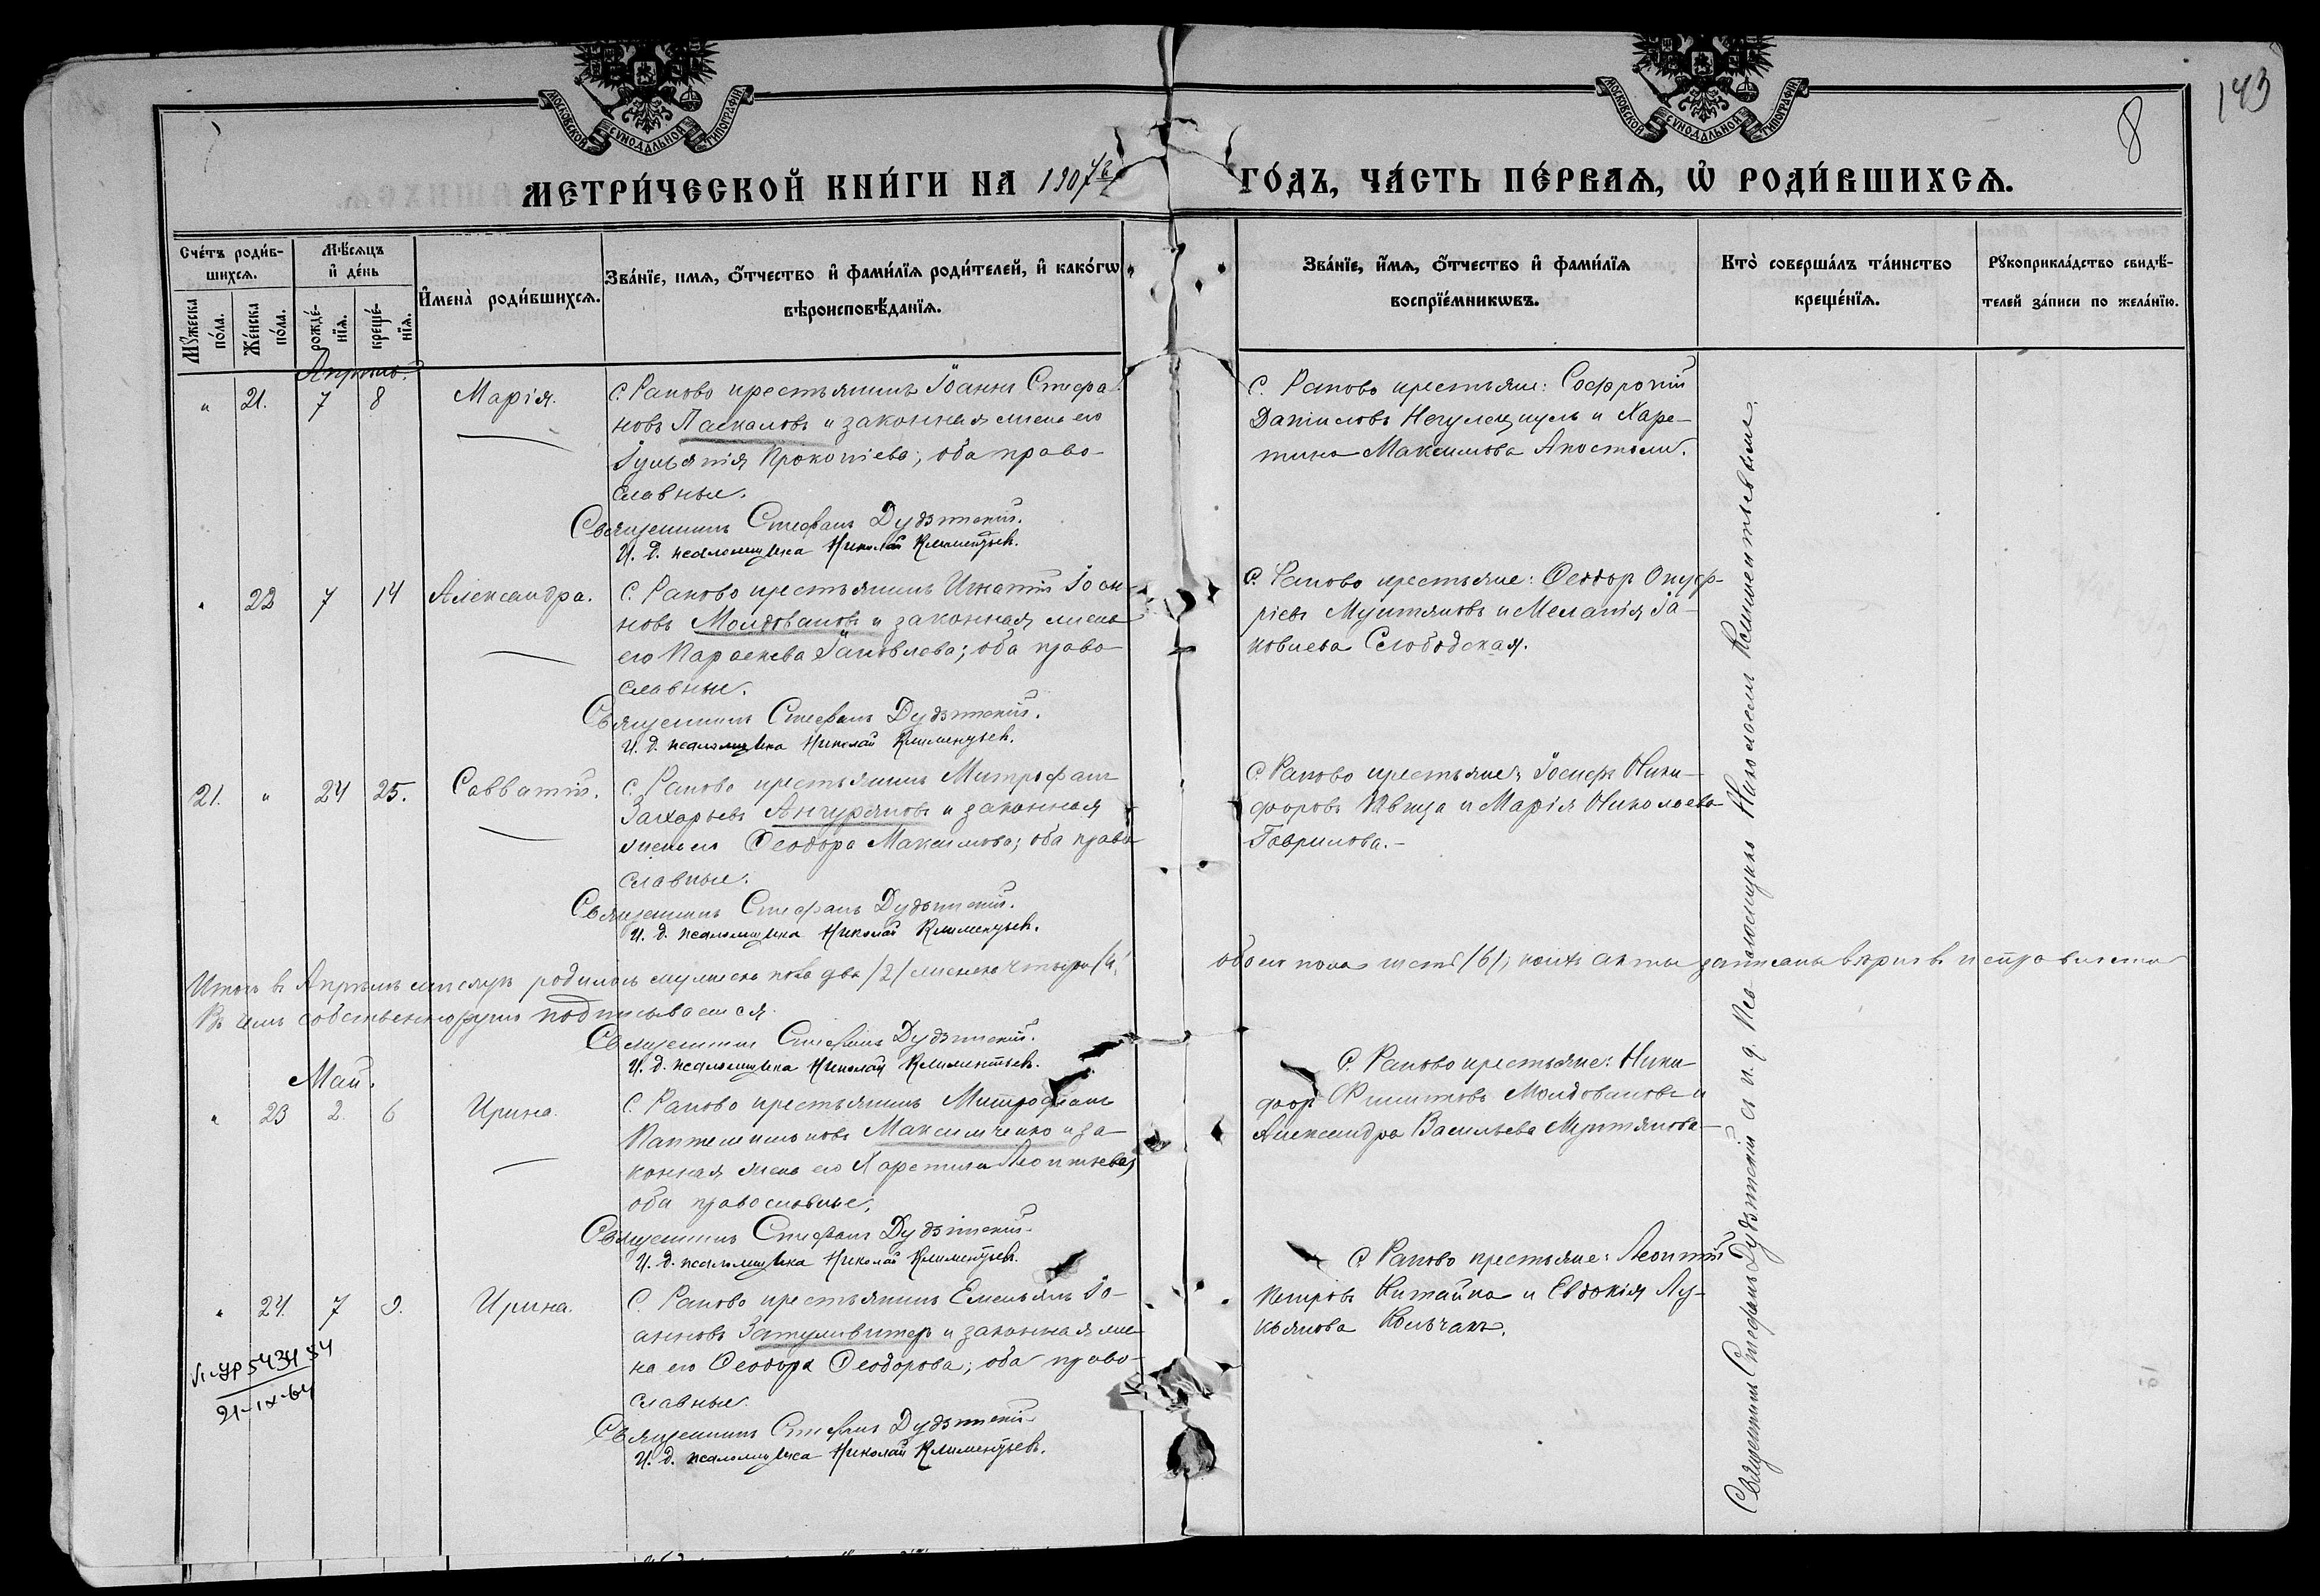 143
8
МОСКОВСКОЙ СѴНОДАЛЬНОЙ ТИПОГРАФІИ
МОСКОВСКОЙ СѴНОДАЛЬНОЙ ТИПОГРАФІИ
МЕТРИ́ЧЕСКОЙ КНИ́ГИ НА 1907й ГО́ДЪ, ЧА́СТЬ ПЕ́РВАѦ, Ѡ҆ РОДИ́ВШИХСѦ.
Сче́тъ роди́в-
шихсѧ.
Мꙋ́жеска по́ла.
Же́нска по́ла.
Мѣ́сѧцъ
и҆ де́нь
рожде́-нїѧ.
креще́-нїѧ.
И҆мена̀ роди́вшихсѧ.
Зва́нїе, имѧ, ѻ҆́тчество и҆ фами́лїѧ роди́телей, и҆ како́гѡ
вѣроисповѣ́данїѧ.
Зва́нїе, и҆́мѧ, ѻ҆́тчество и҆ фами́лїѧ
воспрїе́мникѡвъ.
Кто̀ соверша́лъ та́инство
креще́нїѧ.
Рꙋкоприкла́дство свидѣ́-
телей за́писи по жела́нїю.
Апрѣль.
" 21. 7 8 Марія.
С. Раково крестьянинъ Іоаннъ Стефа-
новъ Паскаловъ и законная жена его
Іуліанія Прокопіева; оба право-
славные.
Священникъ Стефанъ Дудзитскій.
И. д. псаломщика Николай Климентьевъ.
С. Раково крестьяне: Софроній
Даниловъ Негулещулъ и Харе-
тина Максимова Апостолъ.
" 22 7 14 Александра.
С. Раково крестьянинъ Игнатій Іоан-
новъ Молдовановъ и законная жена
его Параскева Іаковлева; оба право-
славные.
Священникъ Стефанъ Дудзитскій.
И. д. псаломщика Николай Климентьевъ.
С. Раково крестьяне: Ѳеодоръ Онуф-
ріевъ Мунтяновъ и Меланія Іа-
ковлева Слободская.
21. " 24 25. Савватій.
С. Раково крестьянинъ Митрофанъ
Захарьевъ Ангуряновъ и законная
жена его Ѳеодора Максимова; оба право-
славные.
Священникъ Стефанъ Дудзитскій.
И. д. псаломщика Николай Климентьевъ.
С. Раково крестьяне: Іосифъ Ники-
форовъ и Марія Николаева
Гаврилова.-
Итого въ Апрѣлѣ мѣсяцѣ родилось мужеска пола два /2/ женска четыре /4/,
обоего пола шесть /6/; коихъ акты записаны вѣрно и
Въ чемъ собственноручно подписываемся.
Священникъ Стефанъ Дудзитскій.
И. д. псаломщика Николай Климентьевъ.
Май.
" 23 2. 6 Ирина.
С. Раково крестьянинъ Митрофанъ
Пантелимоновъ Максимченко и за-
конная жена его Харетина Леонтьева;
оба православные.
Священникъ Стефанъ Дудзитскій.
И. д. псаломщика Николай Климентьевъ.
С. Раково крестьяне: Ники-
форъ Филиповъ Молдовановъ и
Александра Васильева Мунтянова-
" 24. 7 9. Ирина.
С. Раково крестьянинъ Емельянъ Іо-
анновъ Затуливитеръ и законная же-
на его Ѳеодора Ѳеодорова; оба право-
славные.
Священникъ Стефанъ Дудзитскій.
И. д. псаломщика Николай Климентьевъ.
С. Раково крестьяне: Леонтій
Петровъ Китайка и Евдокія Лу-
кьянова Колчакъ.
21-IX-64
Священникъ Стефанъ Дудзитскій съ и. д. псаломщика Николаемъ Климентьевымъ.